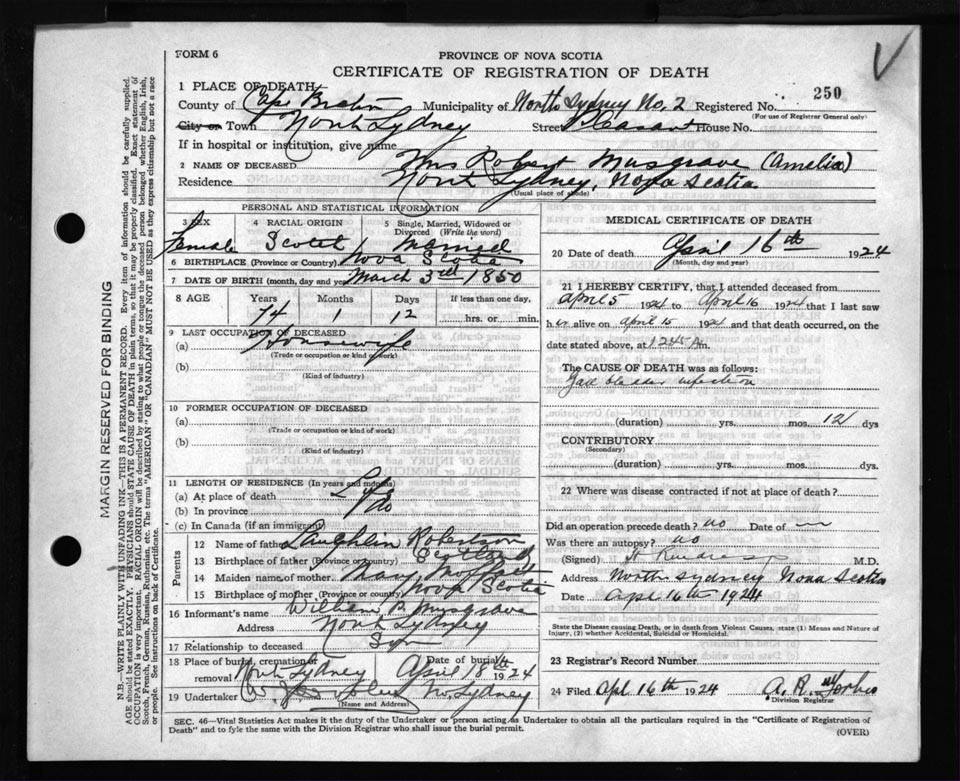 FORM 6
PROVINCE OF NOVA SCOTIA
CERTIFICATE OF REGISTRATION OF DEATH
250
1 PLACE OF DEATH
County of Cape Breton Municipality of North Sydney No. 2 Registered No.
(For use of Registrar General only)
City or Town North Sydney Street Pleasant House No.
If in hospital or institution, give name
2 NAME OF DECEASED Mrs Robert Musgrave (Amelia)
Residence North Sydney, Nova Scotia
(Usual place of abode)
PERSONAL AND STATISTICAL INFORMATION
3 SEX 4 RACIAL ORIGIN 5 Single, Married, Widowed or Divorced (Write the word)
Female Scotch Married
6 BIRTHPLACE (Province or Country) Nova Scotia
7 DATE OF BIRTH (month, day and year) March 3rd 1850
8 AGE Years Months Days If less than one day,
74 1 12 hrs. or min.
9 LAST OCCUPATION OF DECEASED
(a) Housewife
(Trade or occupation or kind of work)
(b)
(Kind of industry)
10 FORMER OCCUPATION OF DECEASED
(a)
(Trade or occupation or kind of work)
(b)
(Kind of industry)
11 LENGTH OF RESIDENCE (In years and months)
(a) At place of death Life
(b) In province Do
(c) In Canada (if an immigrant)
Parents
12 Name of father Laughlin Robertson
13 Birthplace of father (Province or country) Scotland
14 Maiden name of mother Mary
15 Birthplace of mother (Province or country) Nova Scotia
16 Informant's name William P. Musgrave
Address North Sydney
17 Relationship to deceased Son
18 Place of burial, cremation or removal North Sydney Date of burial April 18th 1924
19 Undertaker No. Sydney
(Name and Address)
MEDICAL CERTIFICATE OF DEATH
20 Date of death April 16th 1924
(Month, day and year)
21 I HEREBY CERTIFY, that I attended deceased from
April 5 1924 to April 16 1924 that I last saw
her alive on April 15 1924 and that death occurred, on the
date stated above, at 12 45 Am.
The CAUSE OF DEATH was as follows:
Gall bladder infection
(duration) yrs. mos. 12 dys
CONTRIBUTORY
(Secondary)
(duration) yrs. mos. dys.
22 Where was disease contracted if not at place of death?
Did an operation precede death? no Date of
Was there an autopsy? no
(Signed) M.D.
Address North Sydney Nova Scotia
Date Apl 16th 1924
State the Disease causing Death, or to death from Violent Causes, state (1) Means and Nature of Injury, (2) whether Accidental, Suicidal or Homicidal.
23 Registrar's Record Number
24 Filed Apl 16th 1924 A. R. Forbes
Division Registrar
SEC. 46—Vital Statistics Act makes it the duty of the Undertaker or person acting as Undertaker to obtain all the particulars required in the "Certificate of Registration of
Death" and to fyle the same with the Division Registrar who shall issue the burial permit.
(OVER)
MARGIN RESERVED FOR BINDING
N.B.—WRITE PLAINLY WITH UNFADING INK—THIS IS A PERMANENT RECORD. Every item of information should be carefully supplied.
AGE should be stated EXACTLY. PHYSICIANS should STATE CAUSE OF DEATH in plain terms, so that it may be properly classified. Exact statement of
OCCUPATION is very important. RACIAL ORIGIN will be described by stating to what people or tongue the deceased person belonged whether English, Irish,
Scotch, French, German, Russian, Ruthenian, etc. The terms "AMERICAN" OR "CANADIAN" MUST NOT BE USED as they express citizenship but not a race
or people. See instructions on back of Certificate.